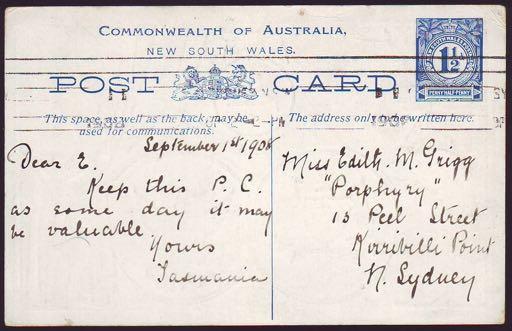 COMMONWEALTH OF AUSTRALIA,
NEW SOUTH WALES.
POST CARD
1½
PENNY HALF-PENNY
This space, as well as the back, may be
used for communications.
The address only to be written here.
September 1st 1908
Dear E.
Keep this P.C.
as some day it may
be valuable
Yours
Tasmania
Miss Edith. M. Grigg
"Porphyry"
15 Peel Street
Kirribilli Point
N. Sydney